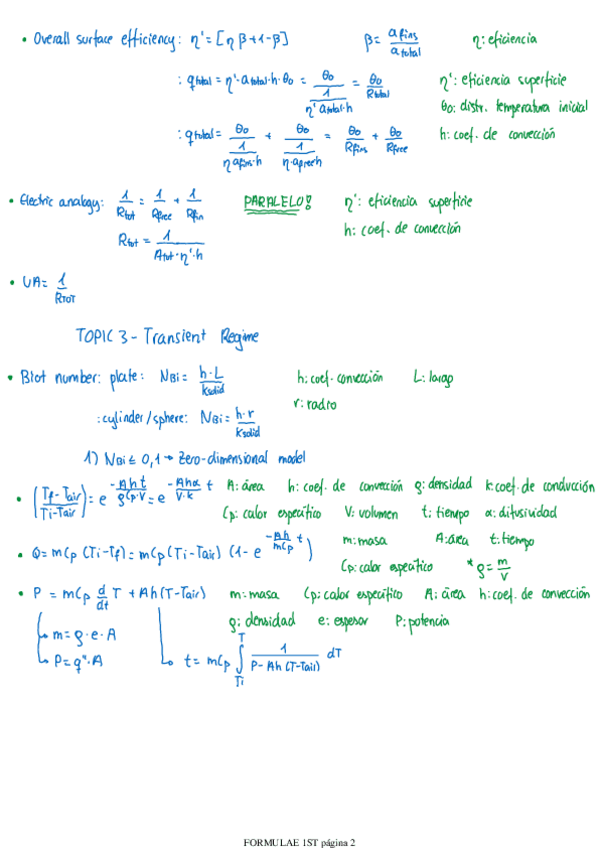 • Overall surface efficiency: η' = [η β + 1 - β] β = a fins / a total η: eficiencia
: q total = η' · a total · h · θo = θo / (1 / η' a total · h) = θo / R total η': eficiencia superficie
θo: distr. temperatura inicial
: q total = θo / (1 / η a fins · h) + θo / (1 / η · a free h) = θo / R fins + θo / R free h: coef. de convección
• Electric analogy: 1 / R tot = 1 / R free + 1 / R fin PARALELO! η': eficiencia superficie
R tot = 1 / A tot · η' · h h: coef. de convección
• UA = 1 / R TOT
TOPIC 3 - Transient Regime
• Biot number: plate: N Bi = h · L / k solid h: coef. convección L: largo
r: radio
: cylinder/sphere: N Bi = h · r / k solid
1) N Bi ≤ 0,1 → Zero-dimensional model
• (Tf - Tair / Ti - Tair) = e^(-A h t / ρ Cp · V) = e^(-A h α / V · k t) A: área h: coef. de convección ρ: densidad k: coef. de conducción
Cp: calor específico V: volumen t: tiempo α: difusividad
• Q = m Cp (Ti - Tf) = m Cp (Ti - Tair) (1 - e^(-A h / m Cp t)) m: masa A: área t: tiempo
Cp: calor específico * ρ = m / V
• P = m Cp d/dt T + A h (T - Tair) m: masa Cp: calor específico A: área h: coef. de convección
ρ: densidad e: espesor P: potencia
↳ m = ρ · e · A
↳ P = q'' · A ↳ t = m Cp ∫ Ti T 1 / P - A h (T - Tair) dT
FORMULAE 1ST página 2